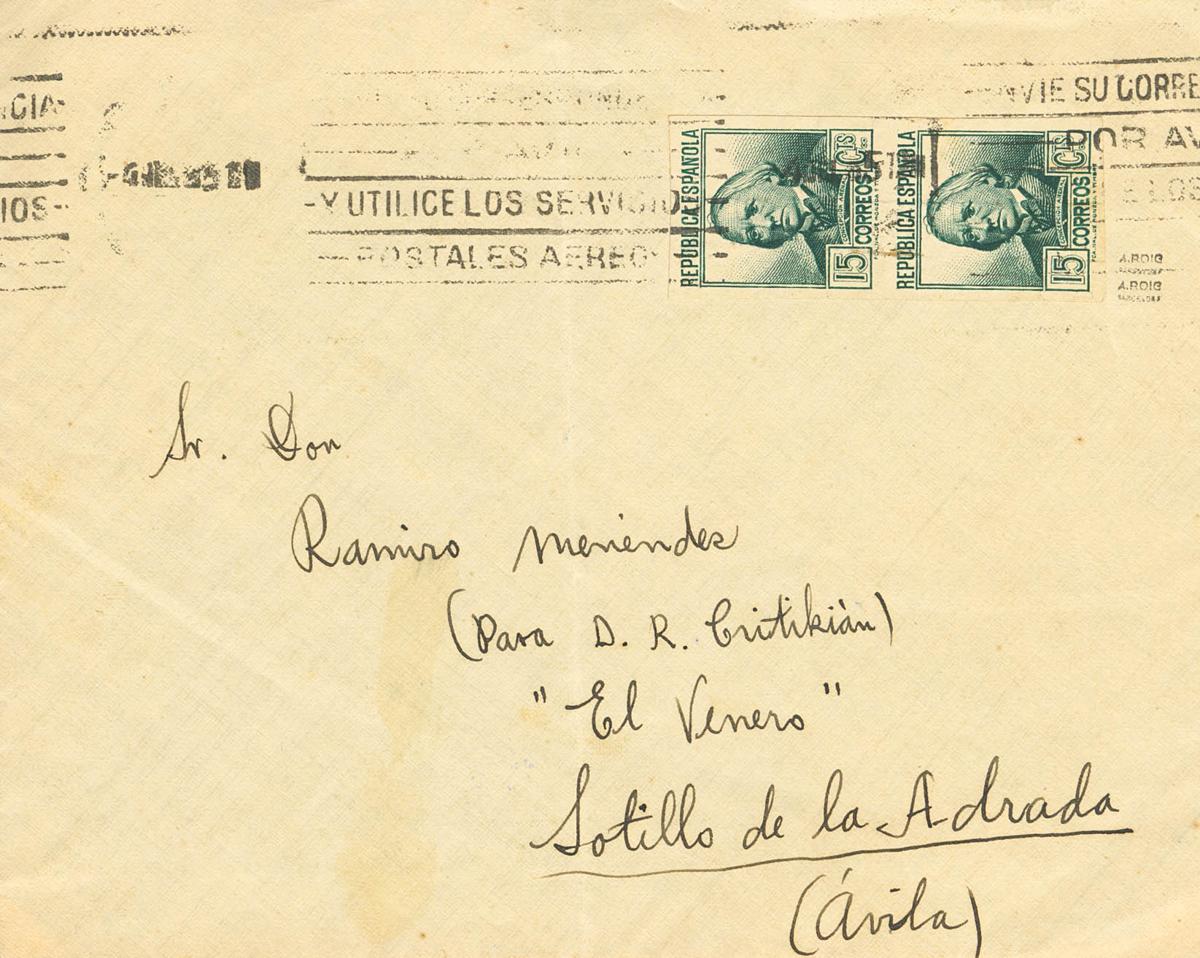 NVIE SU CORRE
POR AV
-Y UTILICE LOS SERVICIO
POSTALES AEREO
E LOS
IOS-
REPUBLICA ESPAÑOLA
15 Cts
CORREOS
REPUBLICA ESPAÑOLA
15 Cts
CORREOS
A.ROIG
BARCELONA
A.ROIG
BARCELONA
Sr. Don
Ramiro Menéndez
(Para D. R. Critikián)
"El Venero"
Sotillo de la Adrada
(Ávila)